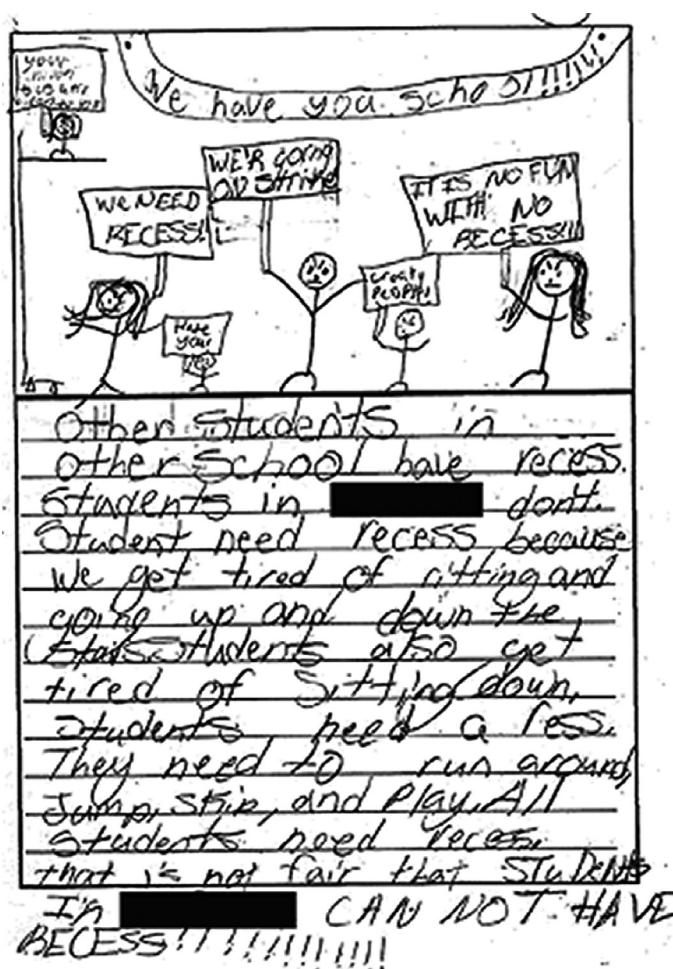 We have you school!!!!!
your
WE'R going
ON Strike
WE NEED
RECESS!!
IT IS NO FUN
WITH NO
RECESS!!!
Hate
you
Other Students in
other School have recess.
Students in dont.
Student need recess because
we get tired of sitting and
going up and down the
stairs. Students also get
tired of Sitting down,
Students need a ress.
They need to run around,
Jump, skip, and Play. All
Students need recess.
that is not fair that STUDENTS
In CAN NOT HAVE
RECESS!!!!!!!!!!!!